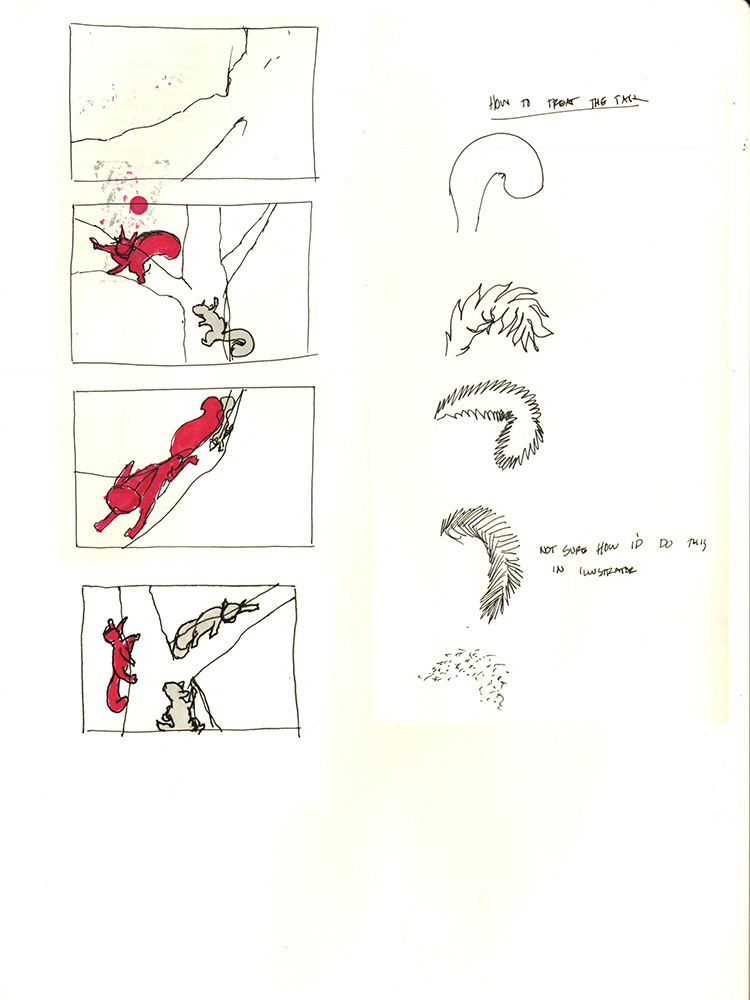 HOW TO TREAT THE TAIL
NOT SURE HOW I'D DO THIS
IN ILLUSTRATOR